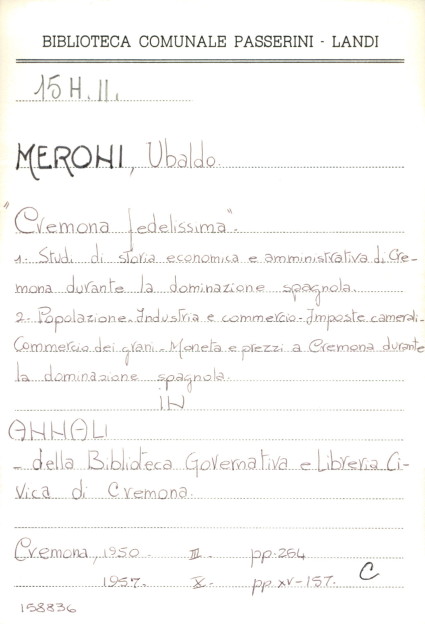 BIBLIOTECA COMUNALE PASSERINI - LANDI
15 H. II.
MERONI, Ubaldo.
"Cremona fedelissima".
1. Studi di storia economica e amministrativa di Cre-
mona durante la dominazione spagnola.
2. Popolazione - Industria e commercio - Imposte camerali -
Commercio dei grani - Moneta e prezzi a Cremona durante
la dominazione spagnola.
IN
ANNALI
- della Biblioteca Governativa e Libreria Ci-
vica di Cremona.
Cremona, 1950. III. pp. 264
1957. X. pp. XV-157. C
158836